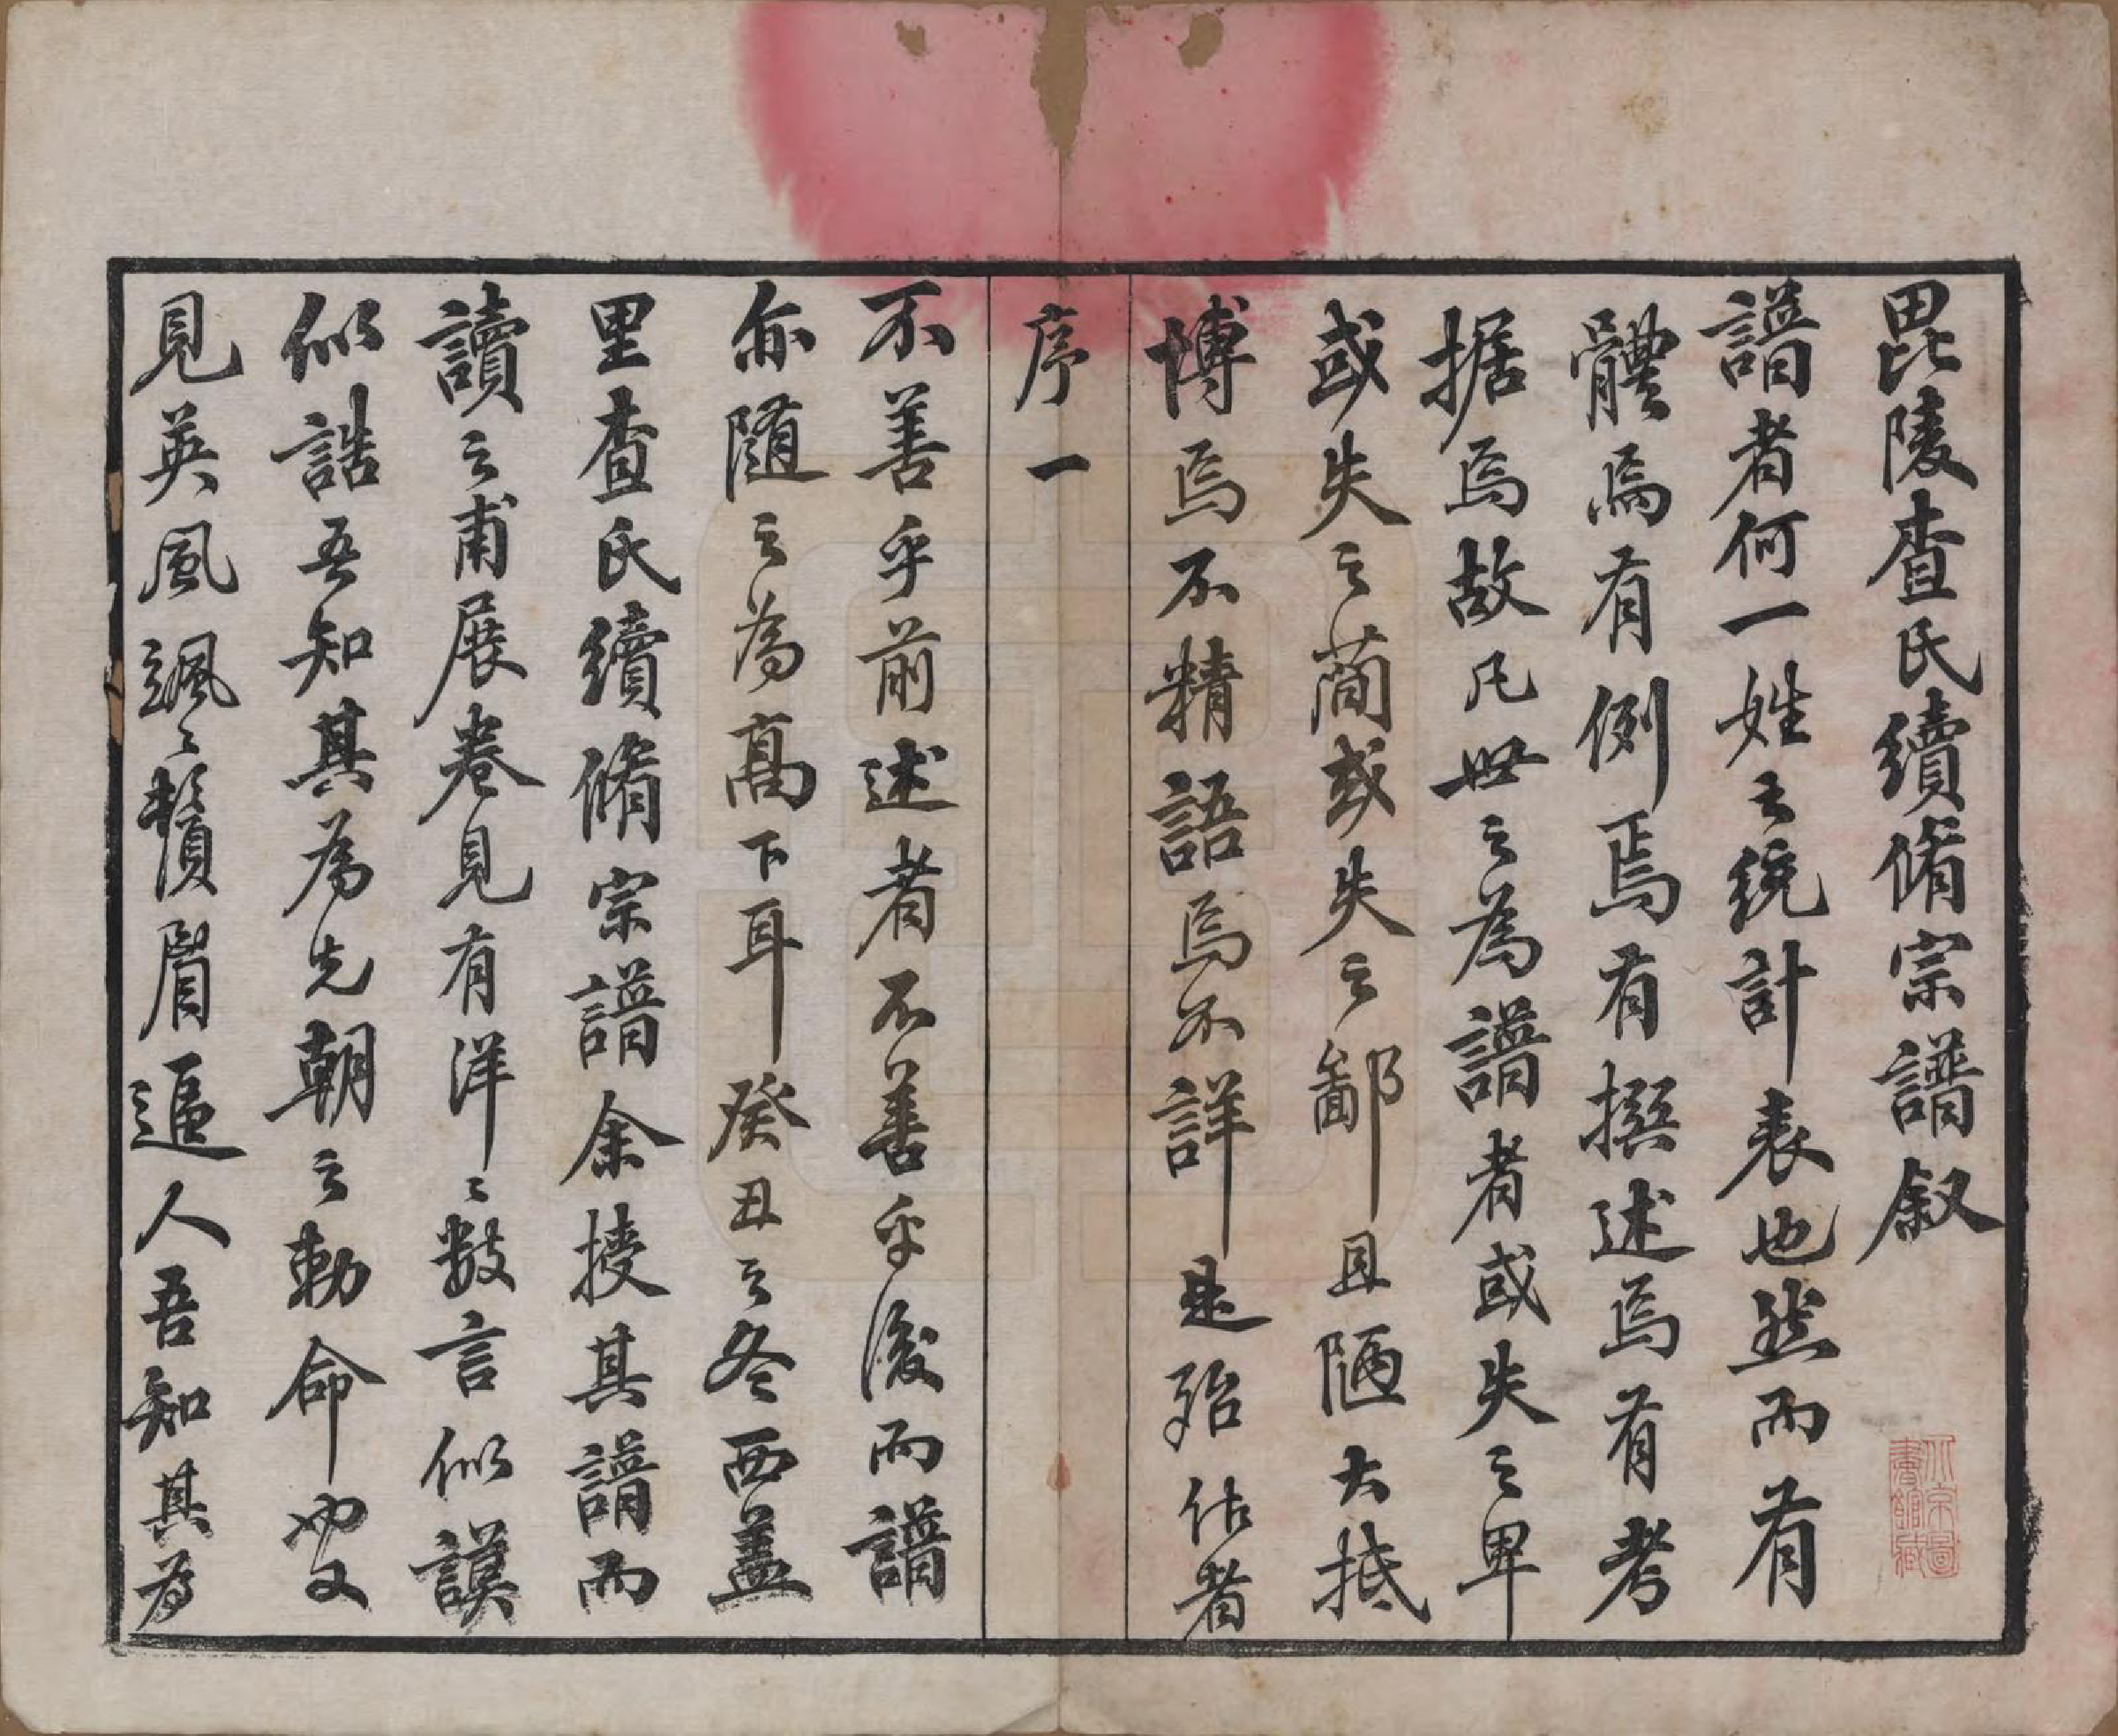 毘陵查氏續脩宗譜叙
譜者何一姓之統計表也然而有
體焉有例焉有撰述焉有考
据焉故凡世之為譜者或失之卑
或失之蕑或失之鄙且陋大抵
博焉不精語焉不詳是殆作者
序一
不善乎前述者不善乎後而譜
亦隨之為高下耳癸丑之冬西蓋
里查氏續脩宗譜余授其譜而
讀之甫展卷見有洋〻數言似謨
似誥吾知其為先朝之勅命也又
見英風颯〻鬚眉逼人吾知其為
北京圖書館藏